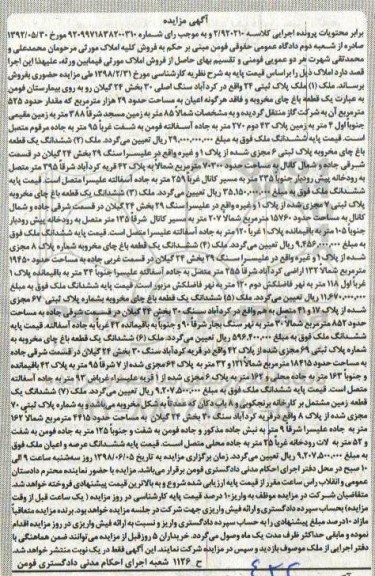 آگهی مزایده
برابر محتویات پرونده اجرایی کلاسه ۲/۹۲۰۲۱۰ و به موجب رای شماره ۹۲۰۹۹۷۱۸۳۸۲۰۰۳۱۰ مورخ ۱۳۹۲/۰۵/۳۰
صادره از شعبه دوم دادگاه عمومی حقوقی فومن مبنی بر حکم به فروش کلیه املاک مورثی مرحومان محمدعلی و
محمدتقی شهرت هر دو عمویی فومنی و تقسیم بهای حاصل از فروش املاک مورثی فیمابین ورثه، علیهذا این اجرا
قصد دارد املاک ذیل را براساس قیمت پایه به شرح نظریه کارشناسی مورخ ۱۳۹۸/۲/۳۱ طی مزایده حضوری بفروش
برساند. ملک (۱) ملک پلاک ثبتی ۲۴ واقع در گردآباد سنگ اصلی ۳۰ بخش ۲۴ گیلان رو به روی بیمارستان فومن
به عبارت یک قطعه باغ چای مخروبه و فاقد هرگونه اعیان به مساحت حدود ۲۹ هزار مترمربع که مقدار حدود ۵۲۵
مترمربع آن به شرکت گاز منتقل گردیده و به مشخصات شمالا ۸۵ متر به زمین مسجد شرقا ۳۸۸ متر به زمین مقیمی
جنوبا اول ۴ متر به زمین پلاک ۴۳ دوم ۲۷۰ متر به جاده آسفالته فومن به شفت غربا ۹۵ متر به جاده مرقوم متصل
است. قیمت پایه ششدانگ ملک فوق به مبلغ ۲۹,۰۰۰,۰۰۰,۰۰۰ ریال تعیین می‌گردد. ملک (۲) ششدانگ یک قطعه
باغ چای مخروبه پلاک ثبتی ۶ مجزی شده از پلاک ۱ و غیره واقع در علیسرا سنگ ۲۹ بخش ۲۴ گیلان در قسمت
شرقی جاده و شمال کانال به مساحت حدود ۷۰۳۰۰ مترمربع شمالا به پلاک ۴۲ قریه گردآباد شرقا ۳۹۵ متر متصل
به رودخانه پیش رودبار جنوبا ۲۳۵ متر به مسیر کانال غربا ۲۵۹ متر به جاده آسفالته علیسرا متصل است. قیمت پایه
ششدانگ ملک فوق به مبلغ ۳۵,۱۵۰,۰۰۰,۰۰۰ ریال تعیین می‌گردد. ملک (۳) ششدانگ یک قطعه باغ چای مخروبه
پلاک ثبتی ۷ مجزی شده از پلاک ۱ و غیره واقع در علیسرا سنگ ۲۹ بخش ۲۴ گیلان در قسمت شرقی جاده و شمال
کانال به مساحت حدود ۱۵۷۶۰ مترمربع شمالا ۲۰۷ متر به مسیر کانال شرقا ۱۳۵ متر متصل به رودخانه پیش رودبار
جنوبا ۱۰۵ متر به باقیمانده پلاک ۱ غربا ۱۲۰ متر به جاده آسفالته علیسرا متصل است. قیمت پایه ششدانگ ملک فوق
به مبلغ ۹,۴۵۶,۰۰۰,۰۰۰ ریال تعیین می‌گردد. ملک (۴) ششدانگ یک قطعه باغ چای مخروبه شماره پلاک ۸ مجزی
شده از پلاک ۱ و غیره واقع در علیسرا سنگ ۲۹ بخش ۲۴ گیلان در قسمت غربی جاده به مساحت حدود ۱۹۴۵۰
مترمربع شمالا ۱۳۲ اراضی گردآباد شرقا ۲۵۵ متر متصل به جاده آسفالته علیسرا جنوبا ۳۴ متر به باقیمانده پلاک ۱
غربا اول ۱۱۸ متر به نهر فاضلکش دوم ۱۲۰ متر به نهر فاضلکش مزبور است. قیمت پایه ششدانگ ملک فوق به مبلغ
۱۱,۶۷۰,۰۰۰,۰۰۰ ریال تعیین می‌گردد. ملک (۵) ششدانگ یک قطعه باغ چای مخروبه بشماره پلاک ثبتی ۶۷ مجزی
شده از پلاک ۱۷ و ۲۱ متصل به هم واقع در گردآباد سنگ ۳۰ بخش ۲۴ گیلان در قسمت شرقی جاده به مساحت
حدود ۸۵۲ مترمربع شمالا ۳۰ متر به نهر سنگ بجار شرقا ۹۰ و جنوبا به باقیمانده ۴۲ غربا به جاده آسفالته. قیمت پایه
ششدانگ ملک فوق به مبلغ ۵۹۶,۴۰۰,۰۰۰ ریال تعیین می‌گردد. ملک (۶) ششدانگ یک قطعه باغ چای مخروبه به
شماره پلاک ثبتی ۶۹ مجزی شده از پلاک ۴۲ واقع در قریه گردآباد سنگ ۳۰ بخش ۲۴ گیلان در قسمت شرقی جاده
به مساحت حدود ۱۸۴۱۵ مترمربع شمالا ۱۲۱ و ۳۷ متر به پلاک ۶۴ مجزی شده از ۷ شرقا ۹۵ متر به پلاک ۴۲ باقیمانده
و جنوبا ۱۶۳ متر به جاده محلی و ۱۶۲ متر به پلاک ۶ مجزی شده از ۱ قریه علیسرا غرباض ۹۳ متر به جاده آسفالته
متصل است. قیمت پایه ششدانگ ملک فوق به مبلغ ۹,۲۰۷,۵۰۰,۰۰۰ ریال تعیین می‌گردد. ملک (۷) ششدانگ یک
قطعه زمین مشتمل بر کارخانه برنجکوبی و آب دنگی که عمدتا به شکل مخروبه می‌باشد و به شماره پلاک ثبتی ۷۰
مجزی شده از پلاک ۸ واقع در قریه گردآباد سنگ ۳۰ بخش ۲۴ گیلان به مساحت حدود ۴۴۱۵ مترمربع شمالا ۱۶۲
متر به جاده علیسرا شرقا ۹ متر به نبش جاده مذکور و جاده فومن به شفت و جنوبا ۱۲۵ متر به جاده فومن به شفت
و ۵۲ متر به لات رودخانه غربا ۲۵ متر به جاده محلی متصل است. قیمت پایه ششدانگ عرصه و اعیان ملک فوق
به مبلغ ۹,۲۰۷,۵۰۰,۰۰۰ ریال تعیین می‌گردد. زمان برگزاری مزایده به تاریخ ۱۳۹۸/۰۶/۰۵ روز سه‌شنبه ساعت ۹ الی
۱۰ صبح در محل دفتر اجرای احکام مدنی دادگستری فومن برقرار می‌باشد. مزایده با حضور نماینده محترم دادستان
عمومی و انقلاب راس ساعت مقرر از قیمت پایه ارزیابی شده شروع و به بالاترین قیمت پیشنهادی فروخته خواهد شد.
متقاضیان شرکت در مزایده موظف به واریز ۱۰ درصد قیمت پایه کارشناسی در روز مزایده ( یک ساعت قبل از وقت
مزایده) بحساب سپرده دادگستری و ارائه فیش واریزی جهت شرکت در جلسه مزایده خواهد بود. برنده مزایده متعاقبا
مازاد ۱۰ درصد مبلغ پیشنهادی را به حساب سپرده دادگستری واریز و نسبت به ارائه فیش واریزی در روز مزایده اقدام
نموده و مابقی حداکثر ظرف مدت یک ماه وصول می‌گردد. خریداران ۵ روز قبل از مزایده می‌توانند ضمن هماهنگی با
دفتر اجرایی از ملک موصوف بازدید و سپس در مزایده شرکت نمایند. این آگهی فقط در یک نوبت منتشر خواهد شد.
ح ۱۱۲۶ شعبه اجرای احکام مدنی دادگستری فومن